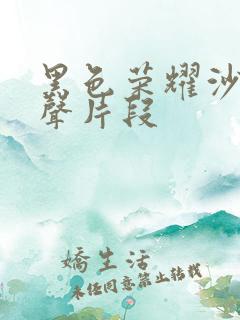 黑色荣耀沙
聲片段
嬌生活
未经同意禁止转载